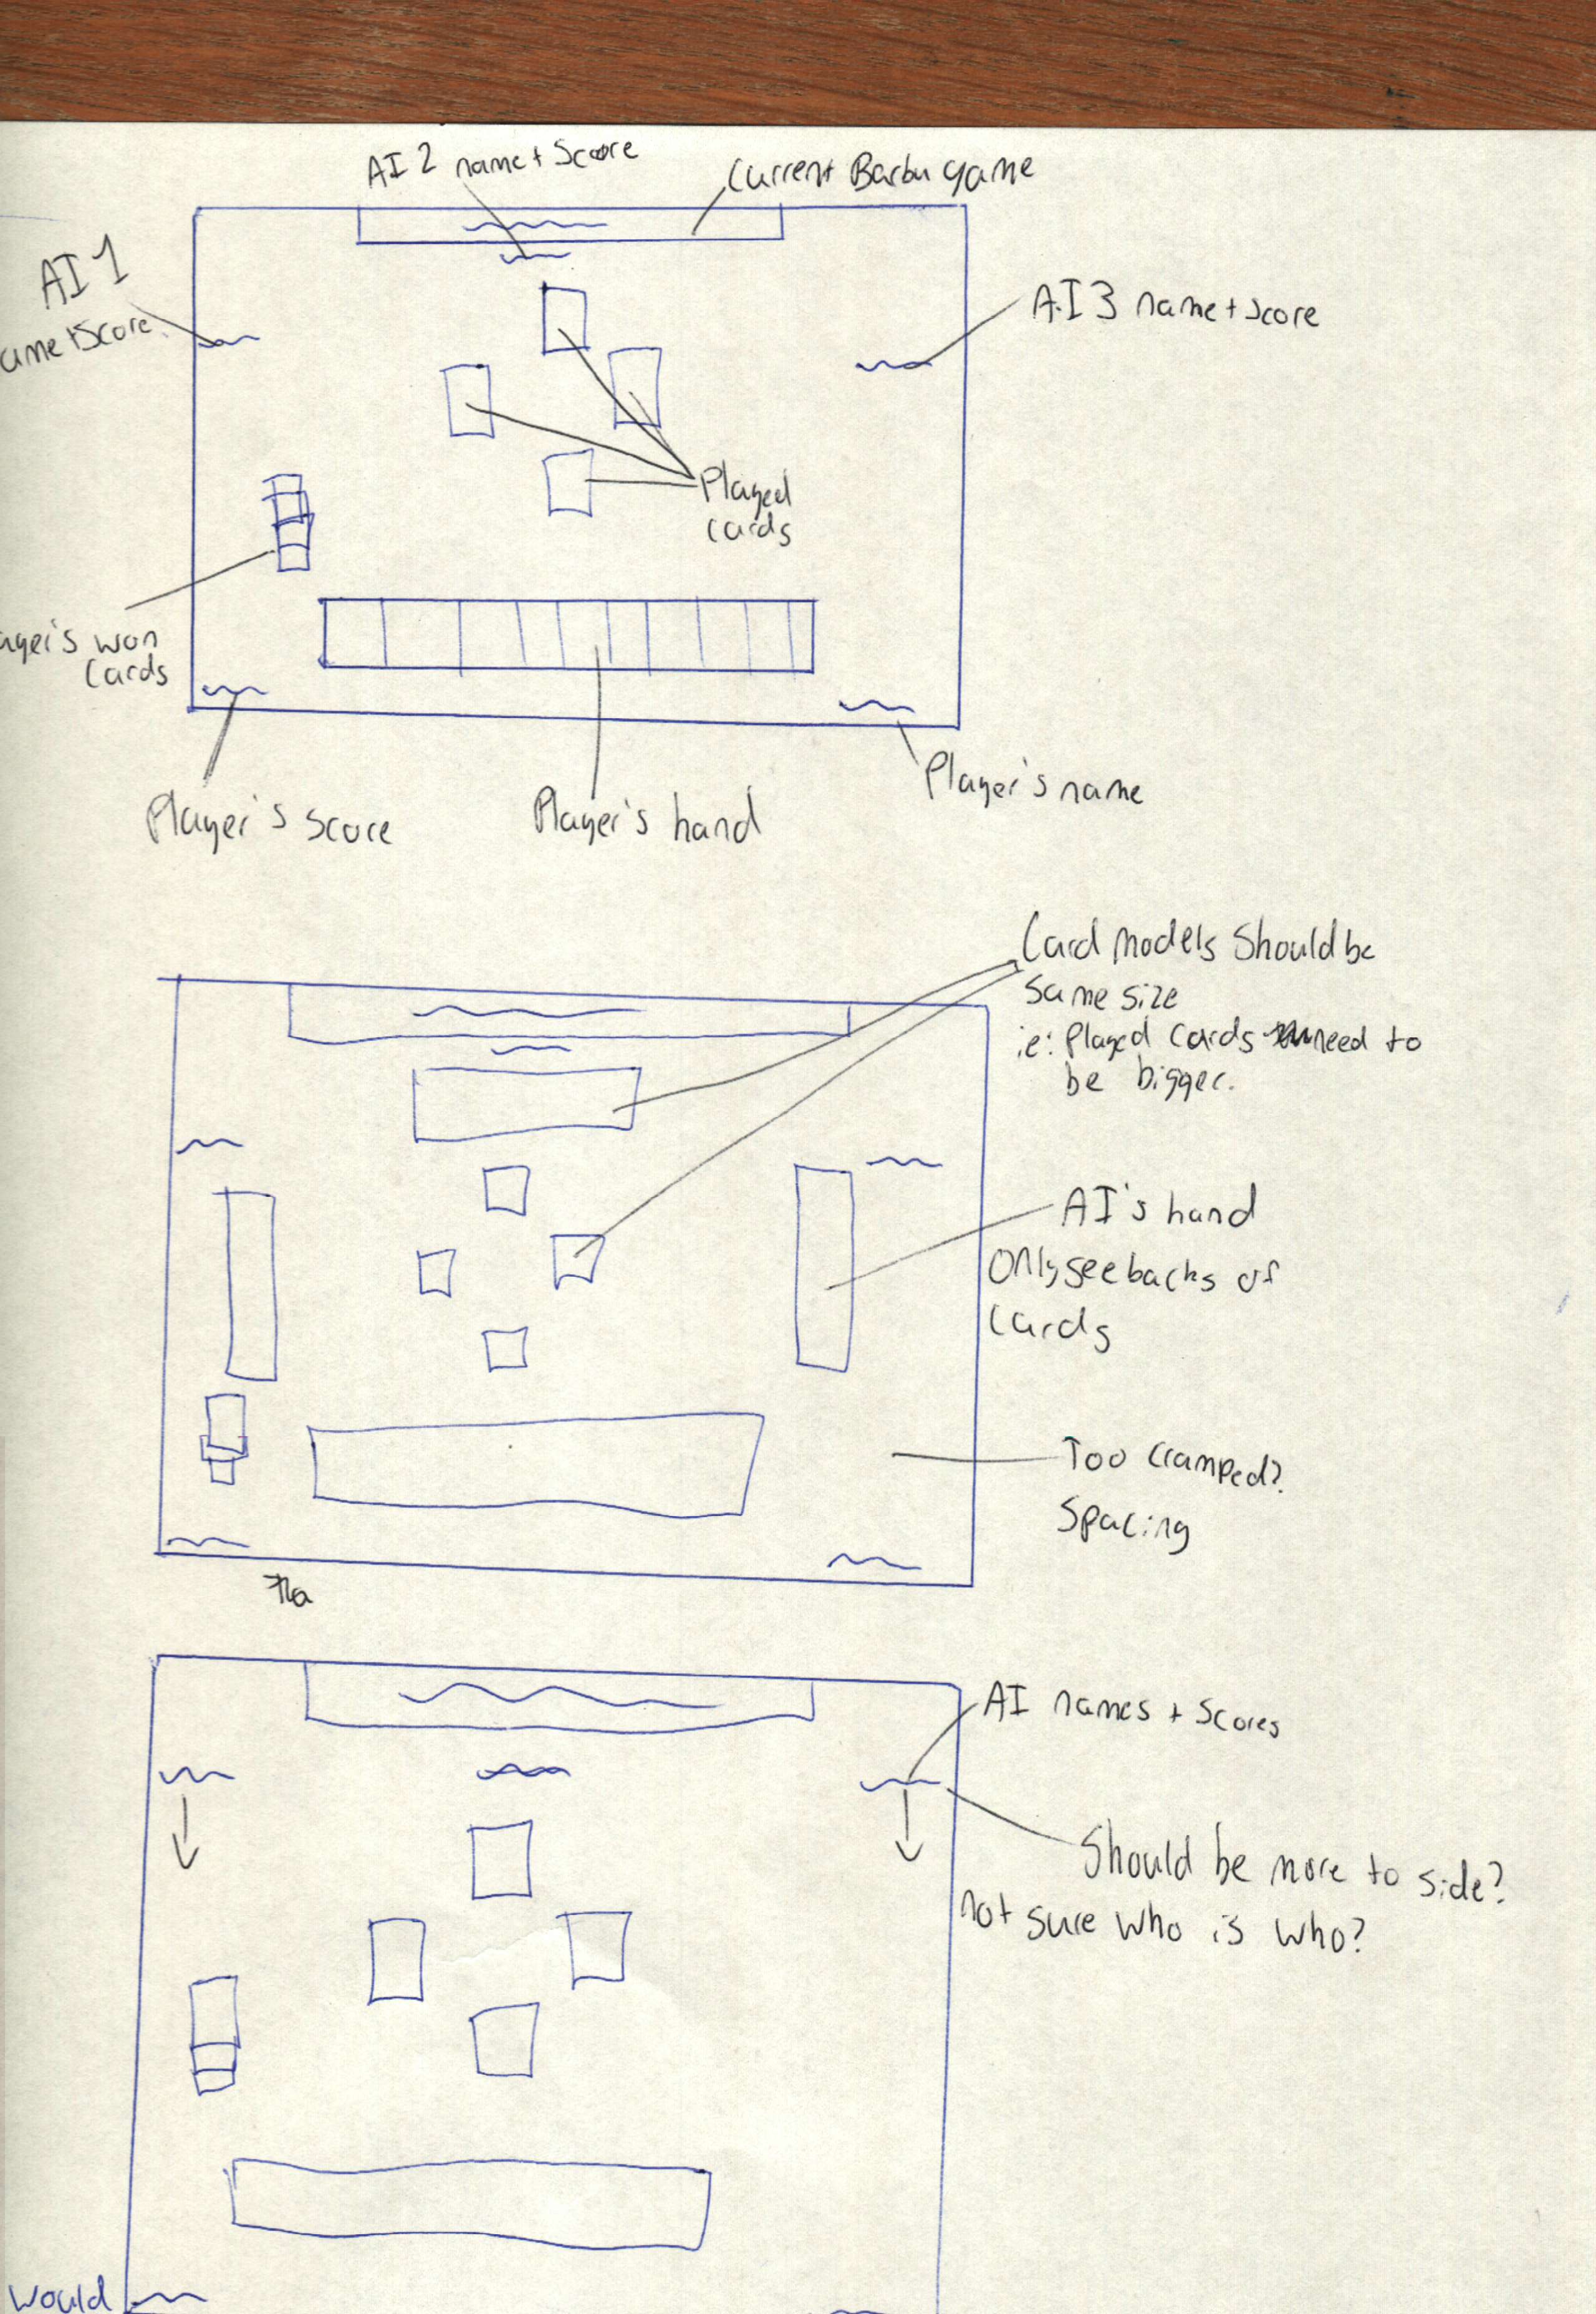 AI 2 name + Score
Current Barbu game
AI 1
ame + Score
A.I 3 name + score
Played
cards
ayer's won
Cards
Player's score
Player's hand
Player's name
Card models Should be
same size
ie: Played cards need to
be bigger.
AI's hand
Only see backs of
cards
Too cramped?
Spacing
AI names + Scores
Should be more to side?
not sure who is who?
Would